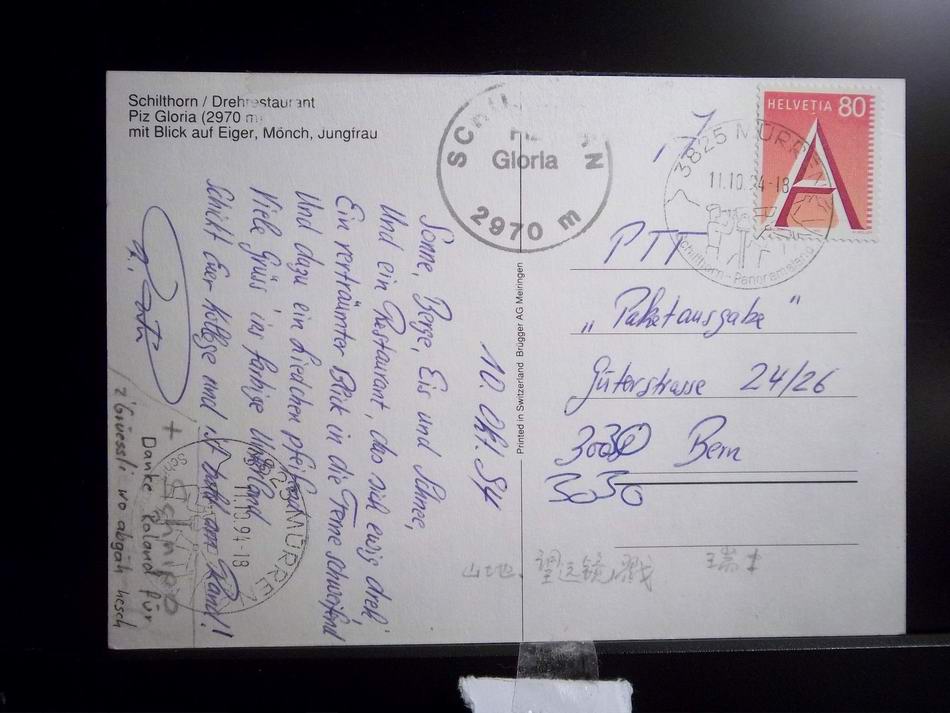 Schilthorn / Drehrestaurant
Piz Gloria (2970 m
mit Blick auf Eiger, Mönch, Jungfrau
SCHILTHORN
Gloria
2970 m
HELVETIA 80
A
3825 MÜRREN
11.10.94-18
Schilthorn-Panorama
A
PTT
„Paketausgabe"
Güterstrasse 24/26
3030 Bern
3030
Printed in Switzerland Brügger AG Meiringen
10. Okt. 94
Sonne, Berge, Eis und Schnee,
Und ein Restaurant, das sich ewig dreh',
Ein verträumter Blik in die Ferne schweifend
Und dazu ein Liedchen pfeifend
Viele Grüss' ins farbige Unterland
Schickt Euer Kollege und ist doch am Rand!
+ Schnipo
Danke Roland für
z'Grüessli wo abgäh hesch
3825 MÜRREN
11.10.94-18
山地、望远镜戳 瑞士